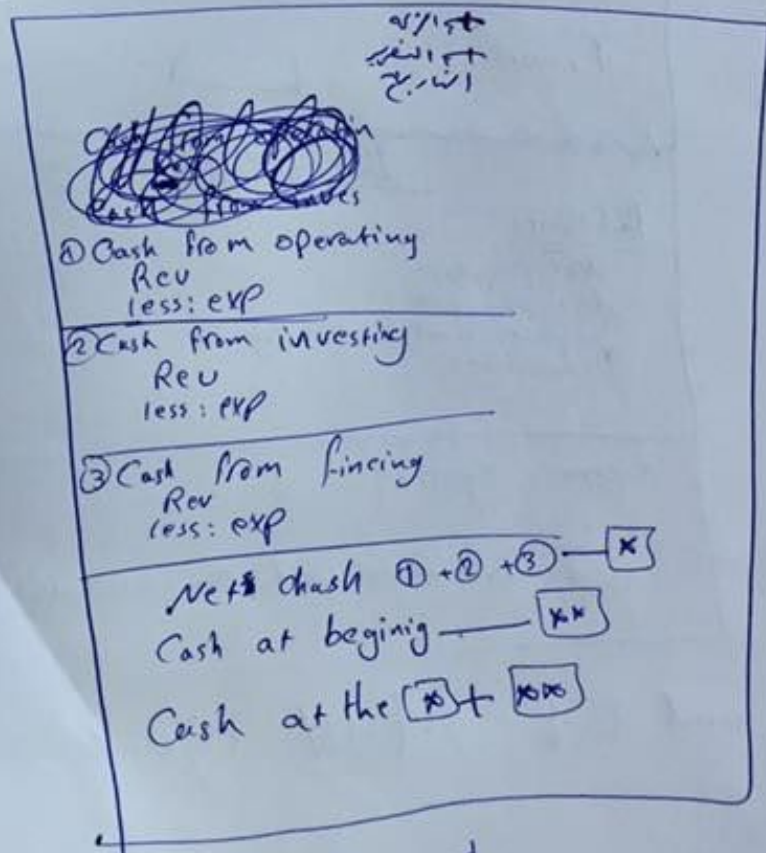 اسم الشركة
اسم التقرير
التاريخ
① Cash from operating
Rev
less: exp
② Cash from investing
Rev
less: exp
③ Cash from fincing
Rev
less: exp
Net chash ① + ② + ③ — *
Cash at beginig — **
Cash at the * + **